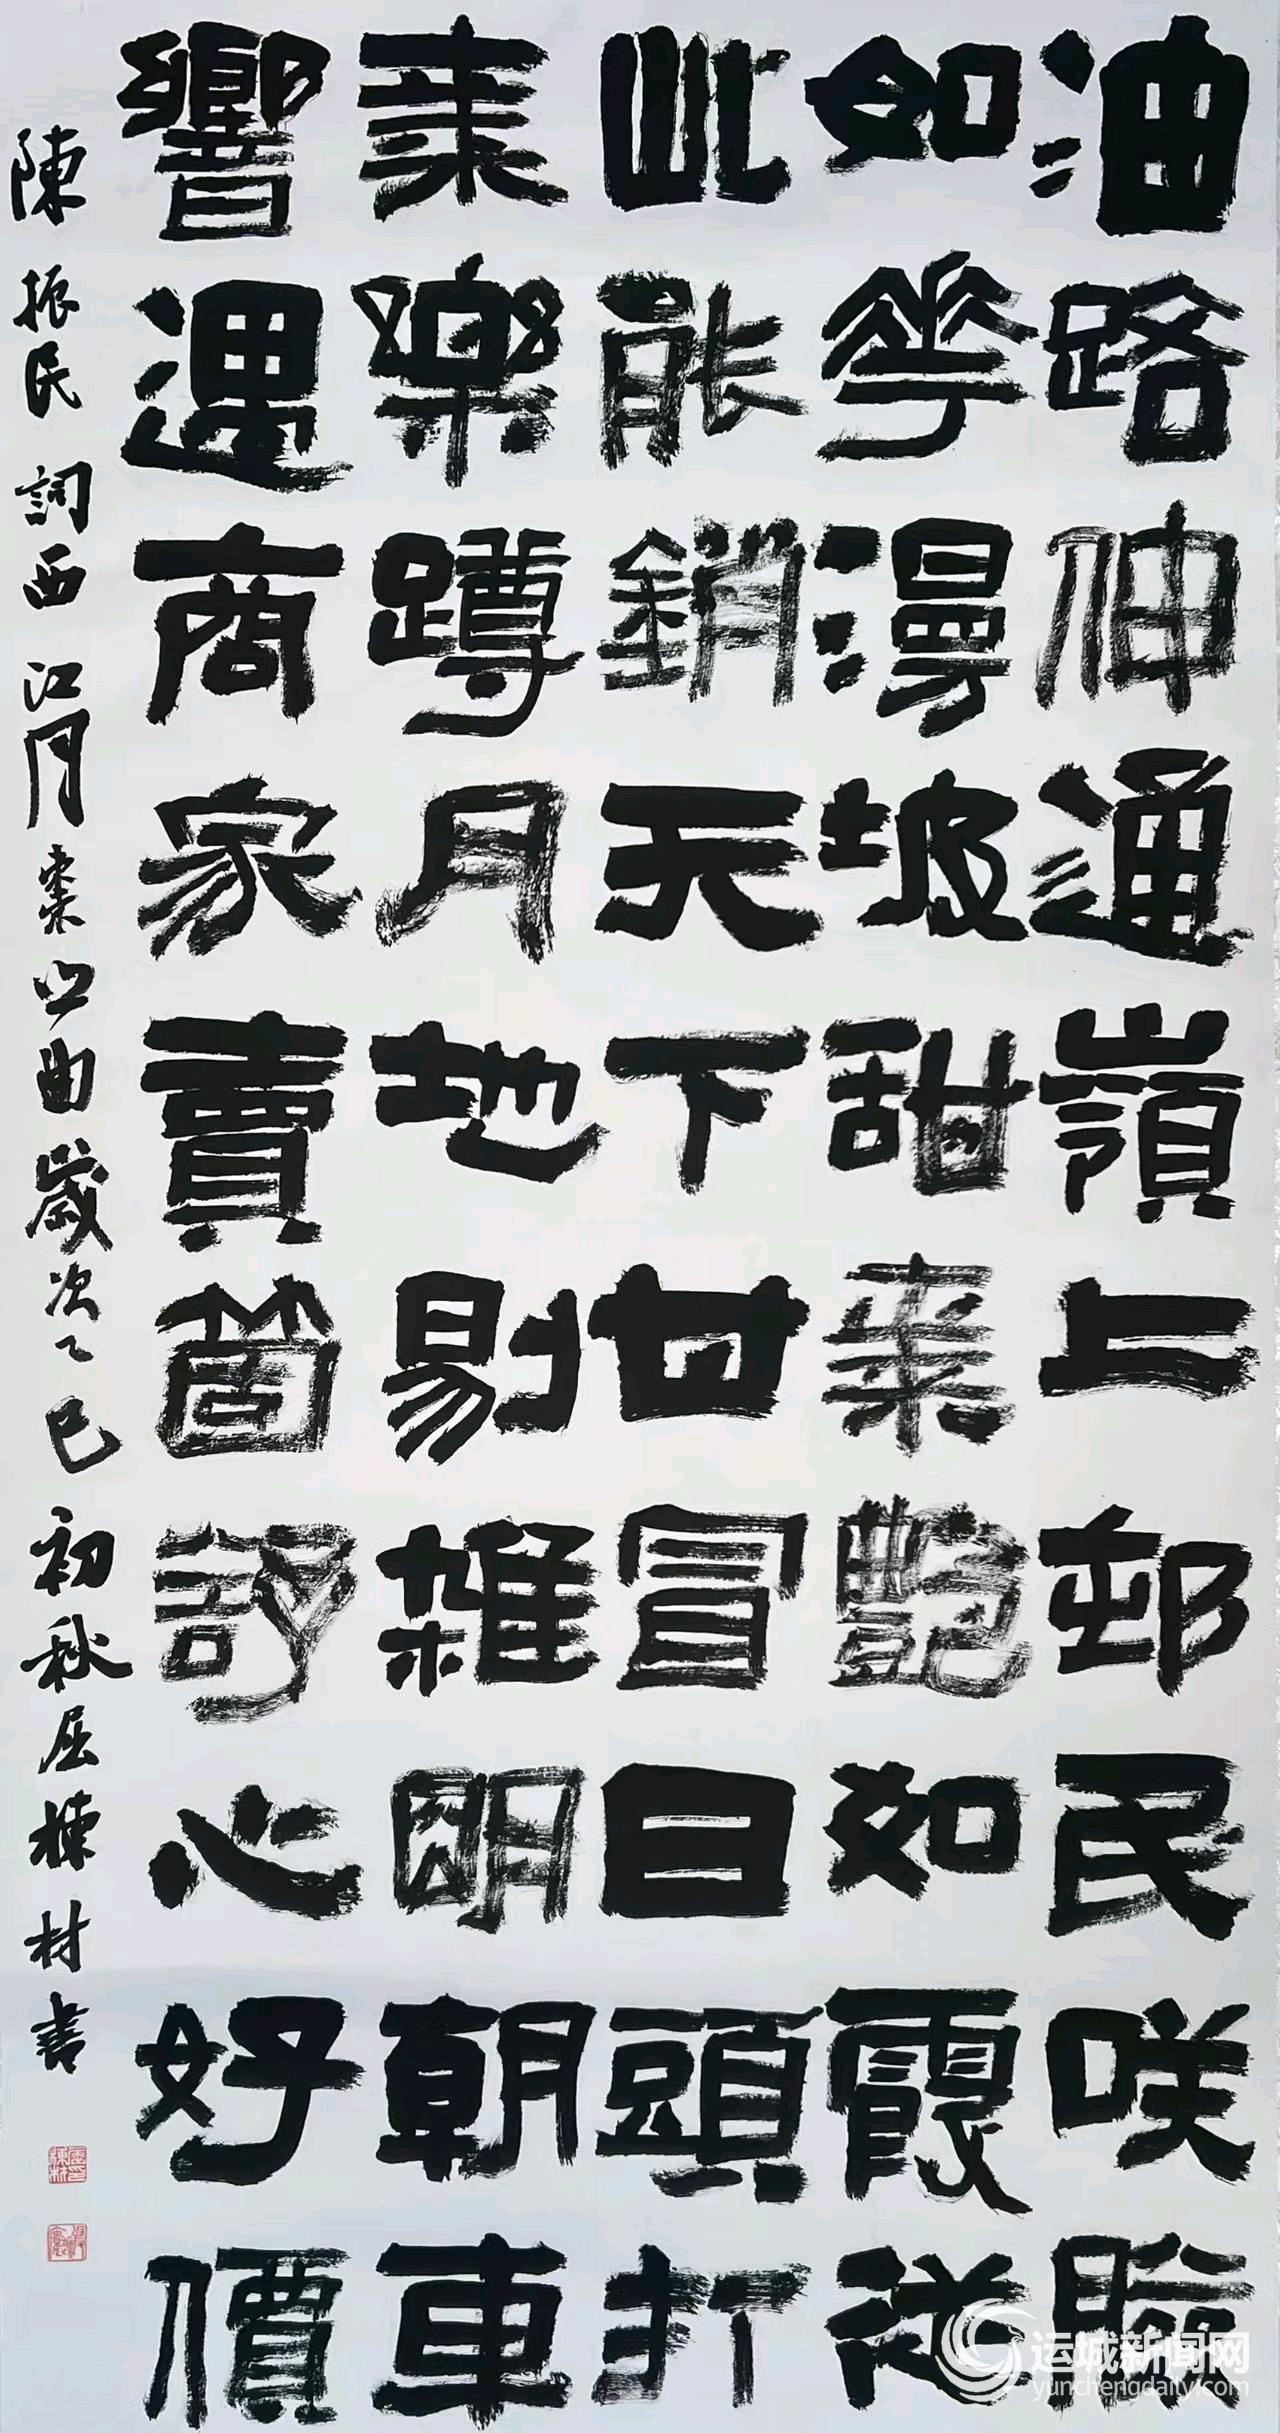 油路伸通嶺上邨民咲臉
如花漫坡甜棗艷如霞從
此能銷天下甘冒日頭打
棗樂蹲月地剔雜明朝車
響遇商家賣箇舒心好價
陳振民詞西江月棗之曲歲次乙巳初秋屈棟材書
运城新闻网
yunchengdaily.com